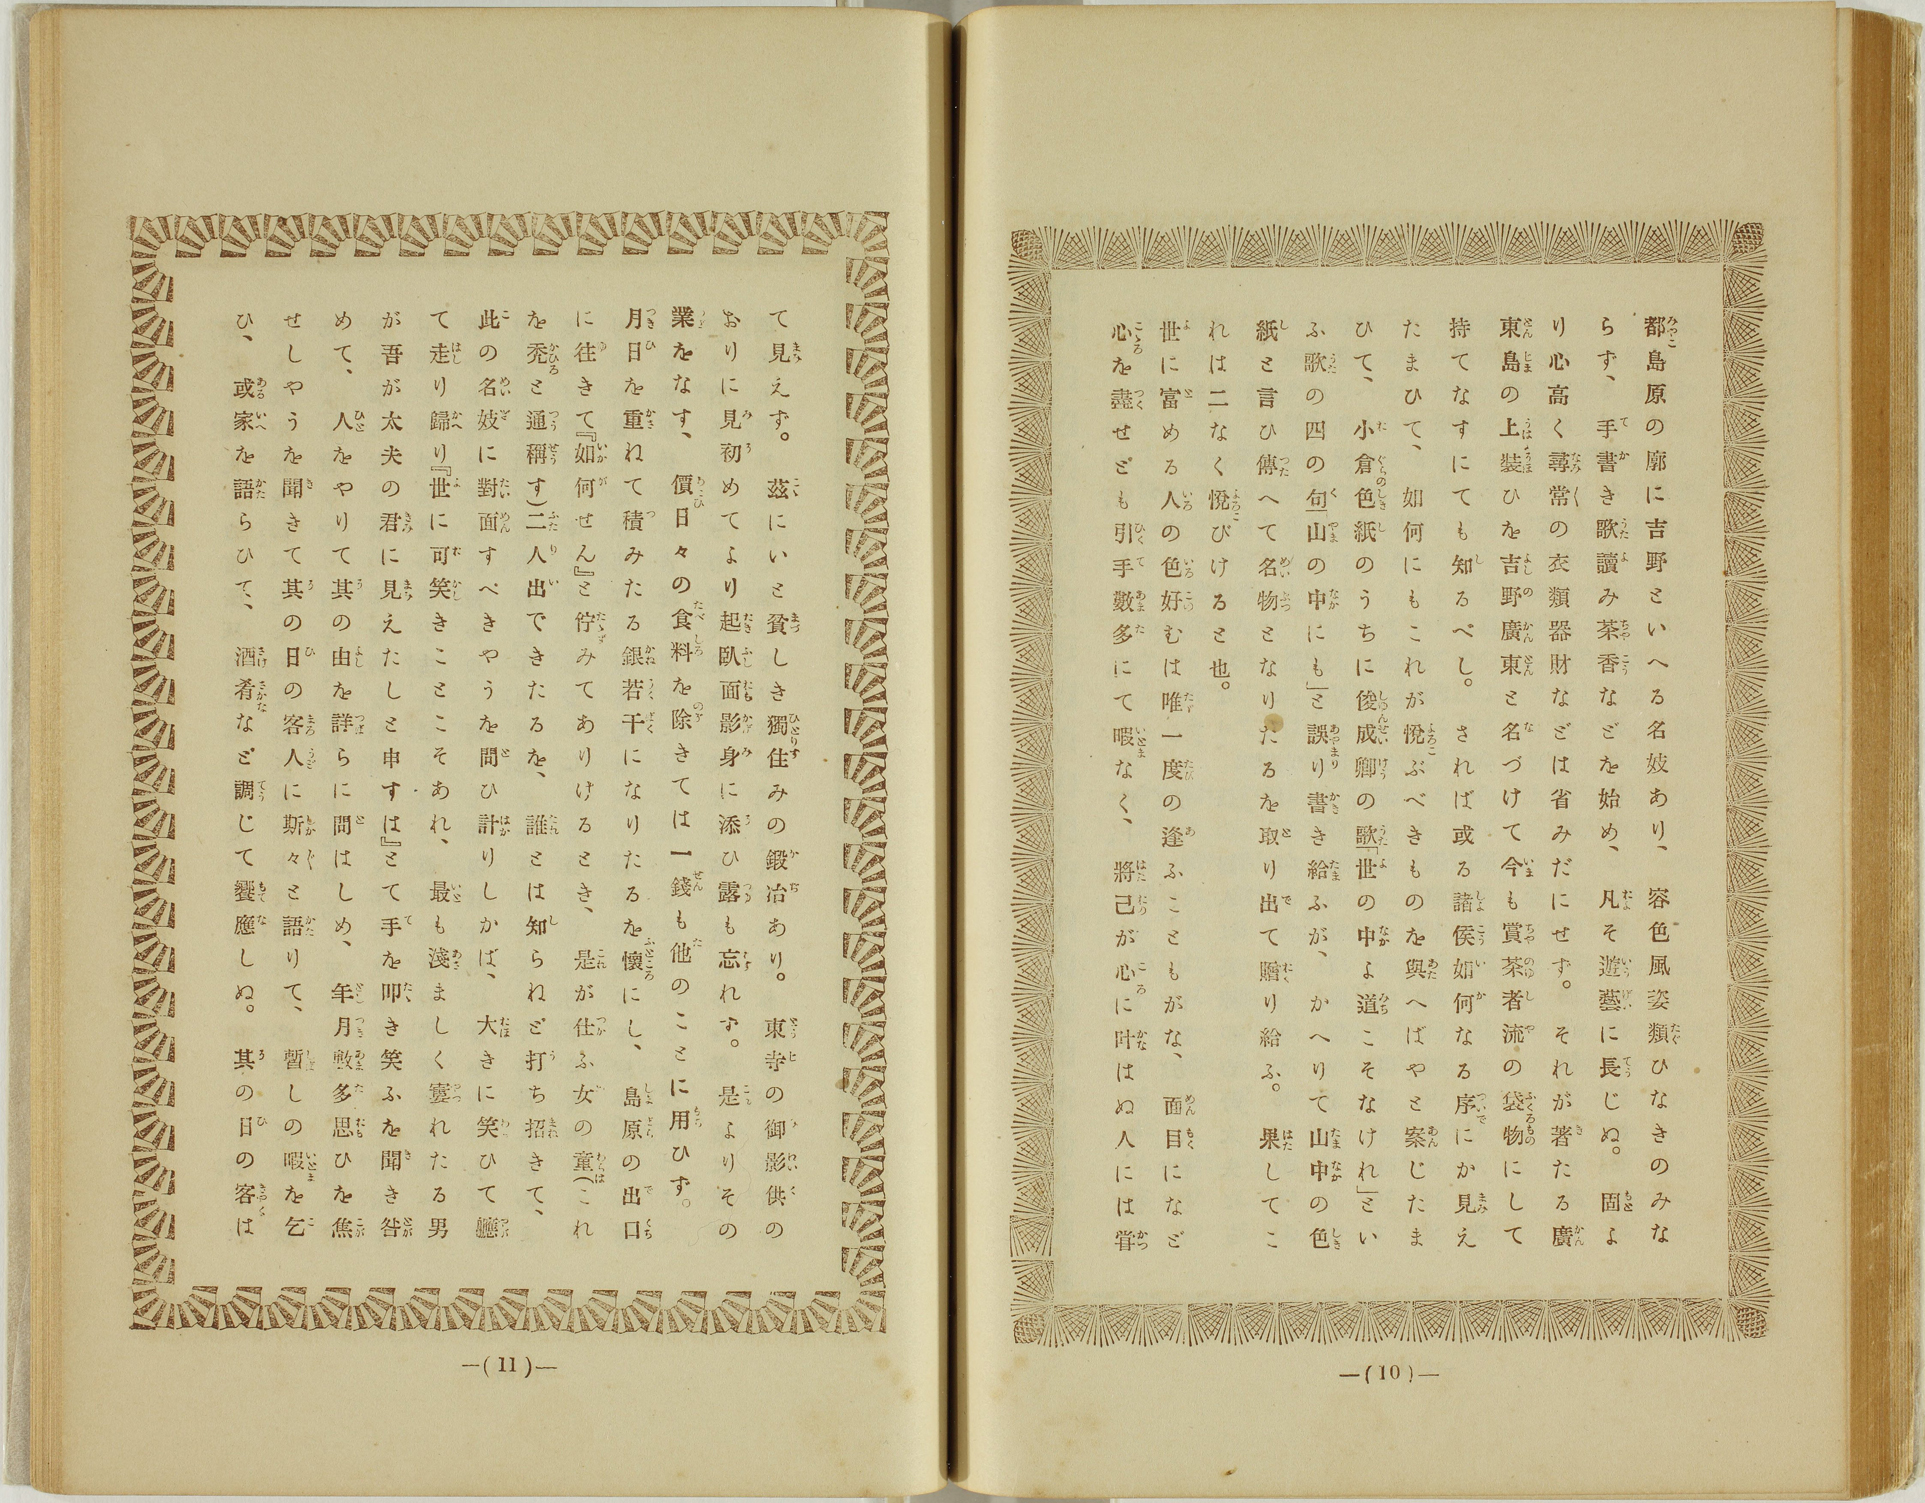 都島原の廓に吉野といへる名妓あり、容色風姿類ひなきのみな
らず、手書き歌讀み茶香などを始め、凡そ遊藝に長じぬ。固よ
り心高く尋常の衣類器財などは省みだにせず。それが著たる廣
東島の上裝ひを吉野廣東と名づけて今も賞茶者流の袋物にして
持てなすにても知るべし。されば或る諸侯如何なる序にか見え
たまひて、如何にもこれが悅ぶべきものを與へばやと案じたま
ひて、小倉色紙のうちに俊成卿の歌「世の中よ道こそなけれ」とい
ふ歌の四の句「山の中にも」と誤り書き給ふが、かへりて山中の色
紙と言ひ傳へて名物となりたるを取り出て贈り給ふ。果してこ
れは二なく悅びけると也。
世に富める人の色好むは唯一度の逢ふこともがな、面目になど
心を盡せども引手數多にて暇なく、將己が心に叶はぬ人には甞
—(10)—
て見えず。茲にいと貧しき獨住みの鍛冶あり。東寺の御影供の
おりに見初めてより起臥面影身に添ひ露も忘れず。是よりその
業をなす、價日々の食料を除きては一錢も他のことに用ひず。
月日を重ねて積みたる銀若干になりたるを懷にし、島原の出口
に徃きて『如何せん』と佇みてありけるとき、是が仕ふ女の童(これ
を禿と通稱す)二人出できたるを、誰とは知らねど打ち招きて、
此の名妓に對面すべきやうを問ひ計りしかば、大きに笑ひて軈
て走り歸り『世に可笑きことこそあれ、最も淺ましく窶れたる男
が吾が太夫の君に見えたしと申すは』とて手を叩き笑ふを聞き咎
めて、人をやりて其の由を詳らに問はしめ、年月數多思ひを焦
せしやうを聞きて其の日の客人に斯々と語りて、暫しの暇を乞
ひ、或家を語らひて、酒肴など調じて饗應しぬ。其の日の客は
—(11)—